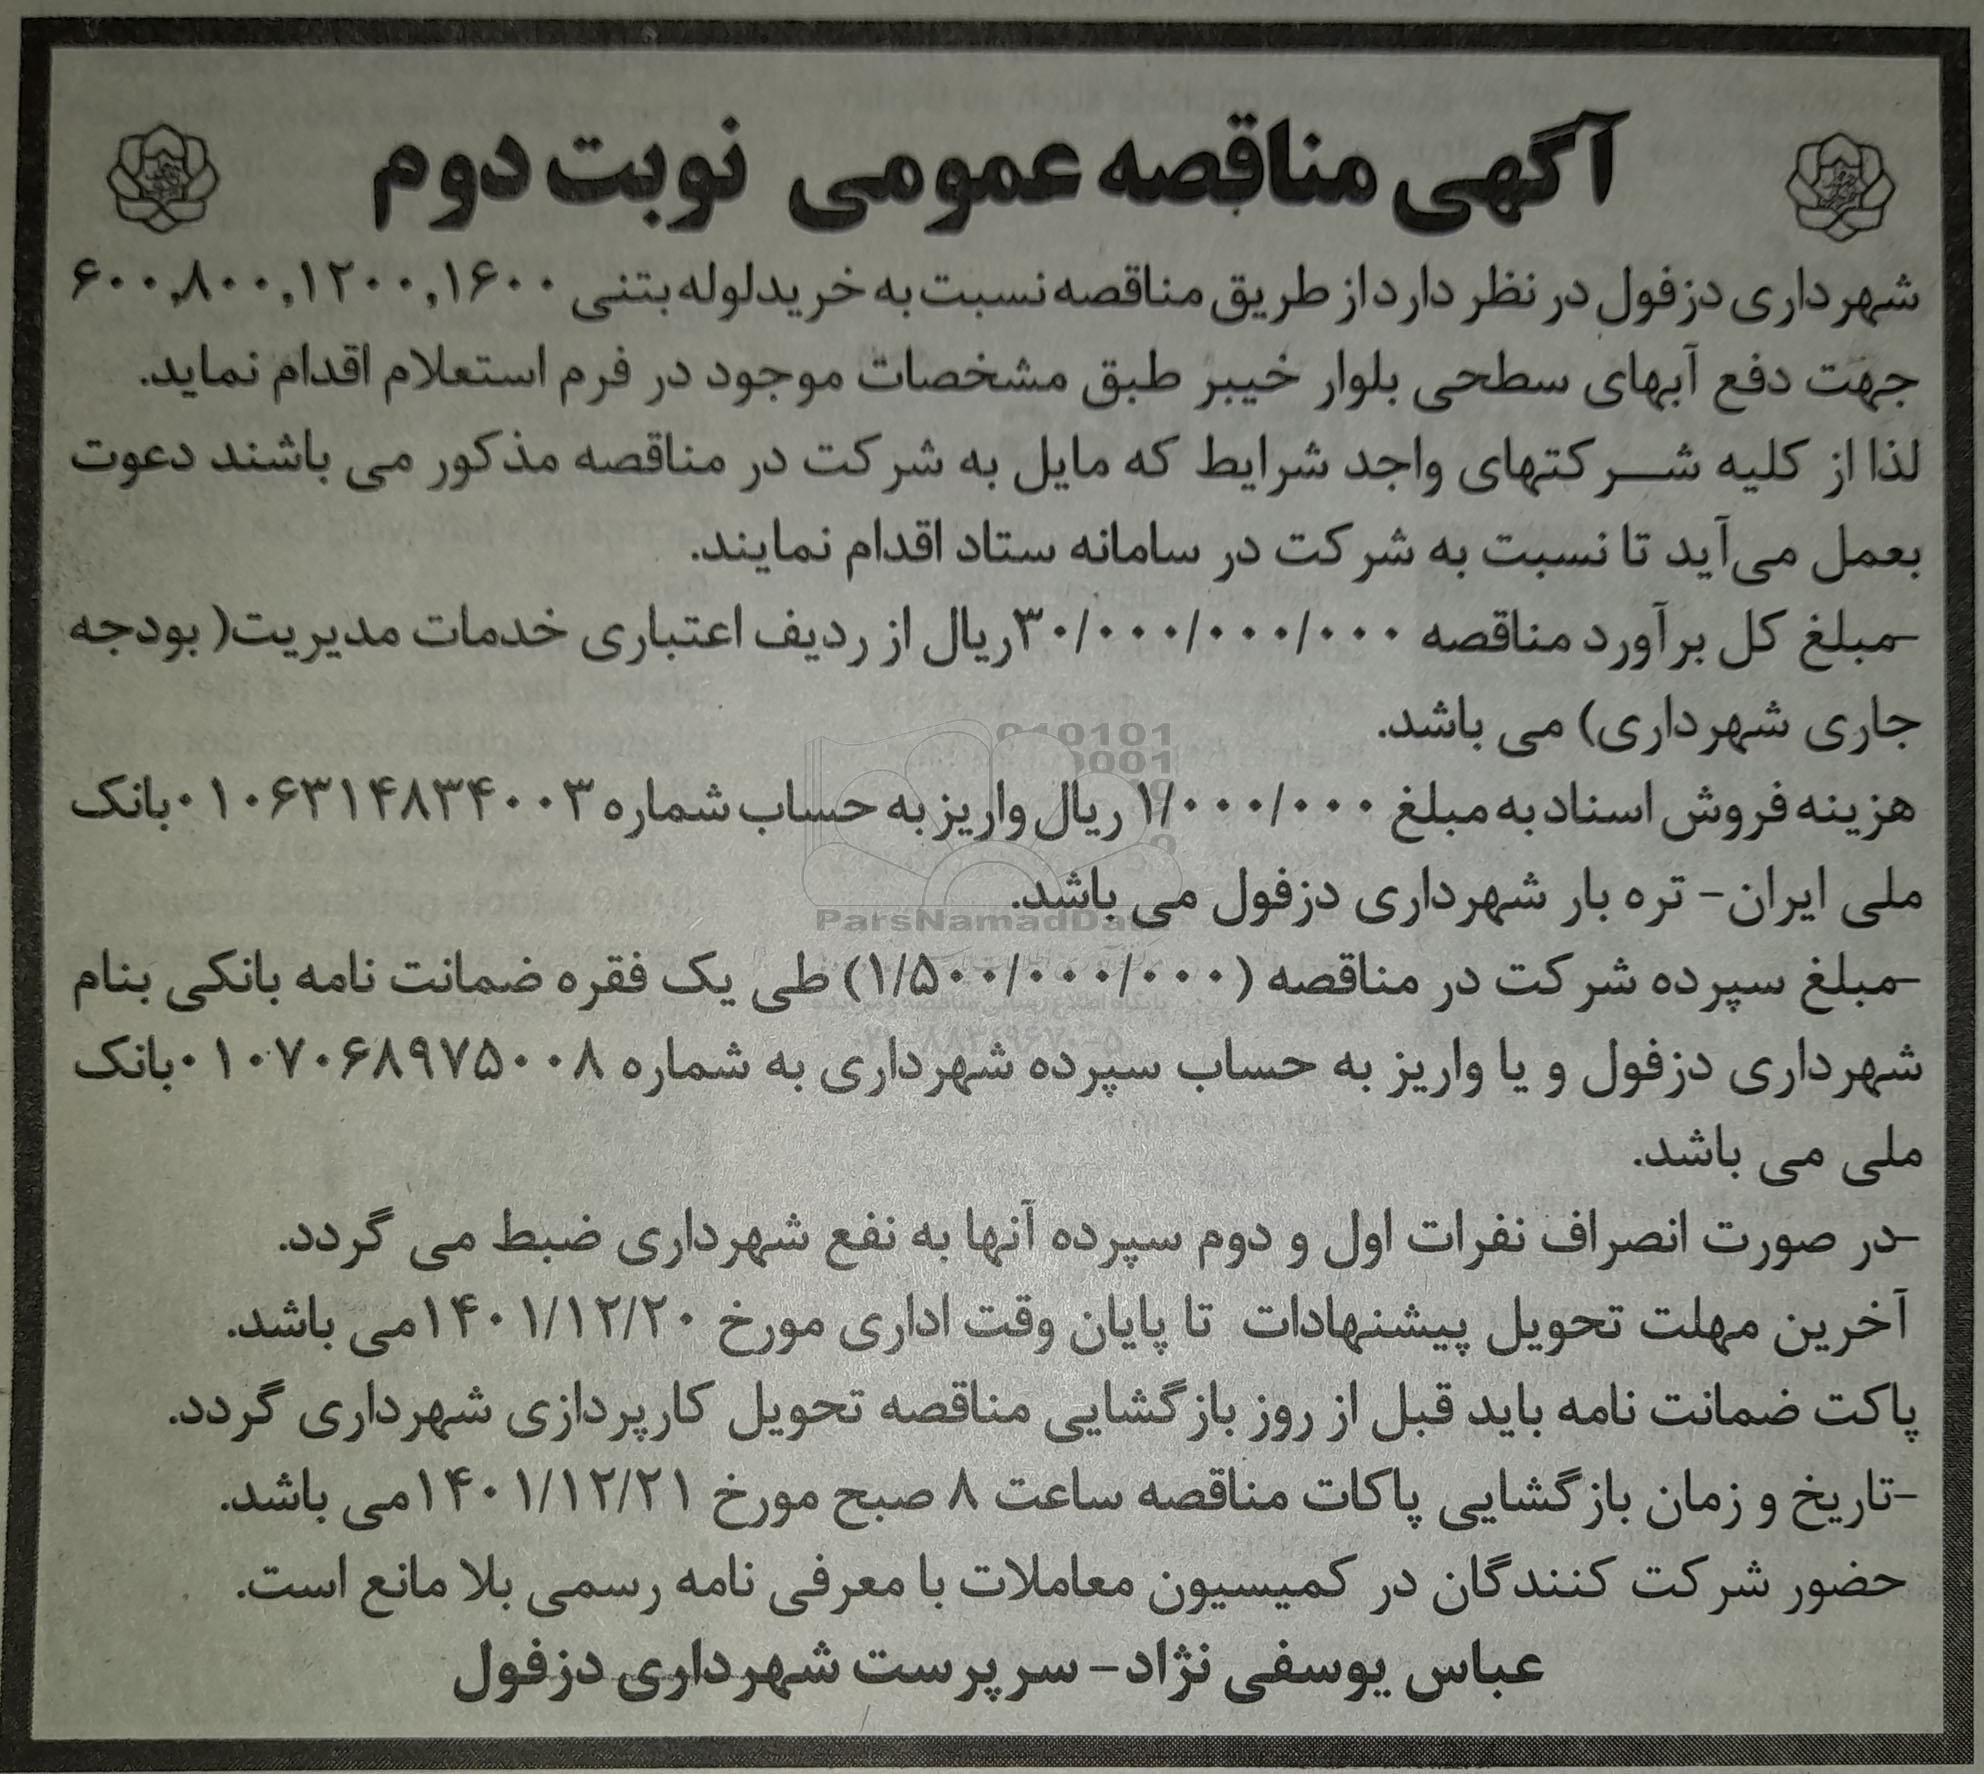 آگهی مناقصه عمومی نوبت دوم
شهرداری دزفول در نظر دارد از طریق مناقصه نسبت به خرید لوله بتنی ۶۰۰,۸۰۰,۱۲۰۰,۱۶۰۰
جهت دفع آبهای سطحی بلوار خیبر طبق مشخصات موجود در فرم استعلام اقدام نماید.
لذا از کلیه شرکتهای واجد شرایط که مایل به شرکت در مناقصه مذکور می باشند دعوت
بعمل می‌آید تا نسبت به شرکت در سامانه ستاد اقدام نمایند.
-مبلغ کل برآورد مناقصه ۳۰/۰۰۰/۰۰۰/۰۰۰ریال از ردیف اعتباری خدمات مدیریت( بودجه
جاری شهرداری) می باشد.
هزینه فروش اسناد به مبلغ ۱/۰۰۰/۰۰۰ ریال واریز به حساب شماره ۰۱۰۶۳۱۴۸۳۴۰۰۳بانک
ملی ایران- تره بار شهرداری دزفول می باشد.
-مبلغ سپرده شرکت در مناقصه (۱/۵۰۰/۰۰۰/۰۰۰) طی یک فقره ضمانت نامه بانکی بنام
شهرداری دزفول و یا واریز به حساب سپرده شهرداری به شماره ۰۱۰۷۰۶۸۹۷۵۰۰۸بانک
ملی می باشد.
-در صورت انصراف نفرات اول و دوم سپرده آنها به نفع شهرداری ضبط می گردد.
آخرین مهلت تحویل پیشنهادات تا پایان وقت اداری مورخ ۱۴۰۱/۱۲/۲۰می باشد.
پاکت ضمانت نامه باید قبل از روز بازگشایی مناقصه تحویل کارپردازی شهرداری گردد.
-تاریخ و زمان بازگشایی پاکات مناقصه ساعت ۸ صبح مورخ ۱۴۰۱/۱۲/۲۱می باشد.
حضور شرکت کنندگان در کمیسیون معاملات با معرفی نامه رسمی بلا مانع است.
عباس یوسفی نژاد- سرپرست شهرداری دزفول
ParsNamadData